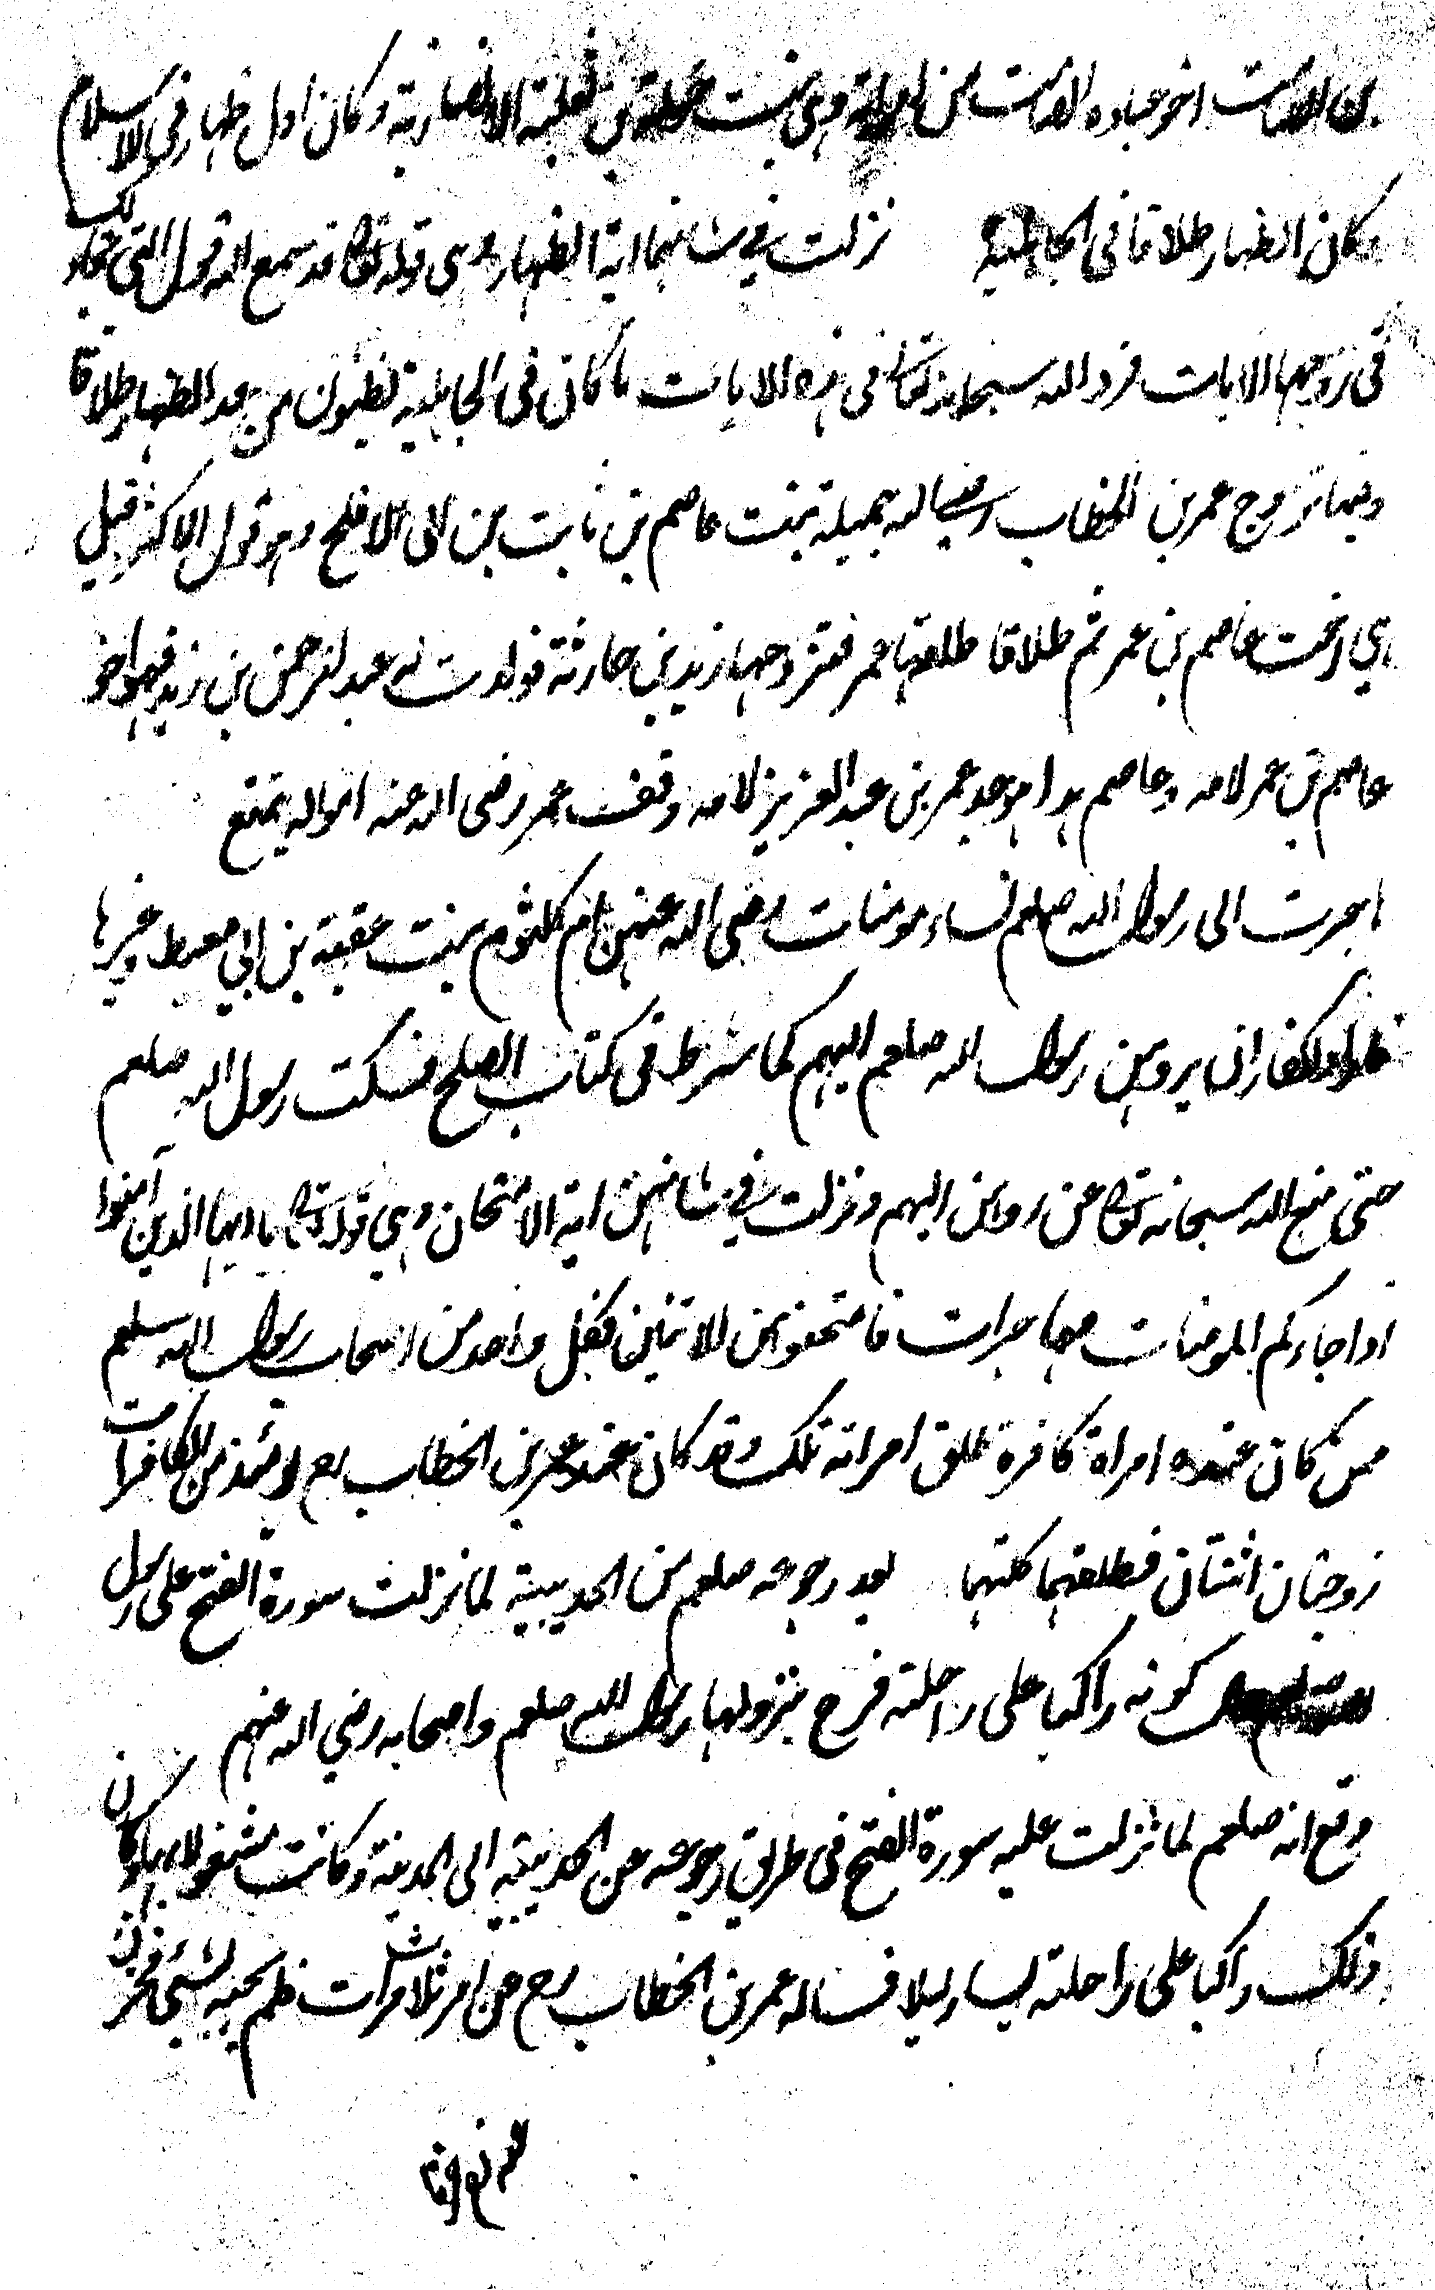 بن الصامت اخو عباده الصامت من امراته وهي بنت خولة بن ثعلبة الانصارية وكان اول ظهار في الاسلام
وكان الظهار طلاقا في الجاهلية نزلت في شانهما اية الظهار وهى قوله تعالى قد سمع الله قول التي تجادلك
في زوجها الايات فرد الله سبحانه تعالى في هذه الايات ما كان في الجاهلية يظنون من عد الظهار طلاقا
وفيها تزوج عمر بن الخطاب رضي الله جميلة بنت عاصم بن ثابت بن ابى الافلح وهو قول الاكثر قيل
هي اخت عاصم بن عمر ثم طلاقا طلقها عمر فتزوجها زيد بن حارثة فولدت له عبد الرحمن بن زيد فهو اخو
عاصم بن عمر لامه وعاصم هذا هو جد عمر بن عبد العزيز لامه وقف عمر رضى الله عنه امواله بثمغ
هاجرت الى رسول الله صلعم نساء مومنات رضى الله عنهن ام كلثوم بنت عقبة بن ابي معيط وغيرها
الكفار ان يردهن رسول الله صلعم اليهم كما شرط فى كتاب الصلح فسكت رسول الله صلعم
حتى منع الله سبحانه تعالى عن ردهن اليهم ونزلت في شانهن اية الامتحان وهي قوله تعالى يا ايها الذين آمنوا
اذا جاءكم المومنات مهاجرات فامتحنوهن الايتين فكل واحد من اصحاب رسول الله صلعم
ممن كان عنده امراة كافرة طلق امراته تلك وقد كان عند عمر بن الخطاب رع يومئذ من الكافرات
زوجتان اثنتان فطلقهما كلتهما بعد رجوعه صلعم من الحديبية لما نزلت سورة الفتح على رسول
كونه راكبا على راحلته فرح بنزولها رسول الله صلعم واصحابه رضي الله عنهم
وقع انه صلعم لما نزلت عليه سورة الفتح فى طريق رجوعه من الحديبية الى المدينة وكانت مشغولا بها وكان
ذلك راكبا على راحلته ليسار ليلا فساله عمر بن الخطاب رع عن امر ثلاث مرات فلم يجبه بشئ فحزن